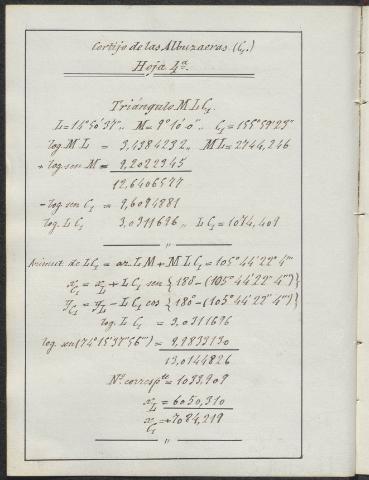 Cortijo de las Albuzaeras (C₁.)
Hoja 4ª.
Triángulo M L C₁.
L=14°50'37"„ M=9°10'0"„ C₁=155°59'23"
log. M L = 3,4384232„ ML=2744,246
+ log. sen M= 9,2022345
12,6406577
- log. sen C₁ = 9,6094881
log. L C₁ 3,0311696„ L C₁=1074,409
"
Azimut de LC₁ = az. L M + M L C₁=105°44'22"4'''
x C₁ = x L + L C₁ sen {180-(105°44'22"4''')}
y C₁ = y L - L C₁ cos {180°-(105°44'22"4''')}
log. L C₁ = 3,0311696
log. sen(74°15'37"56''')= 9,9833130
13,0144826
Nº corresp.te =1033,909
x L = 6050,310
x C₁ =+7084,219
"